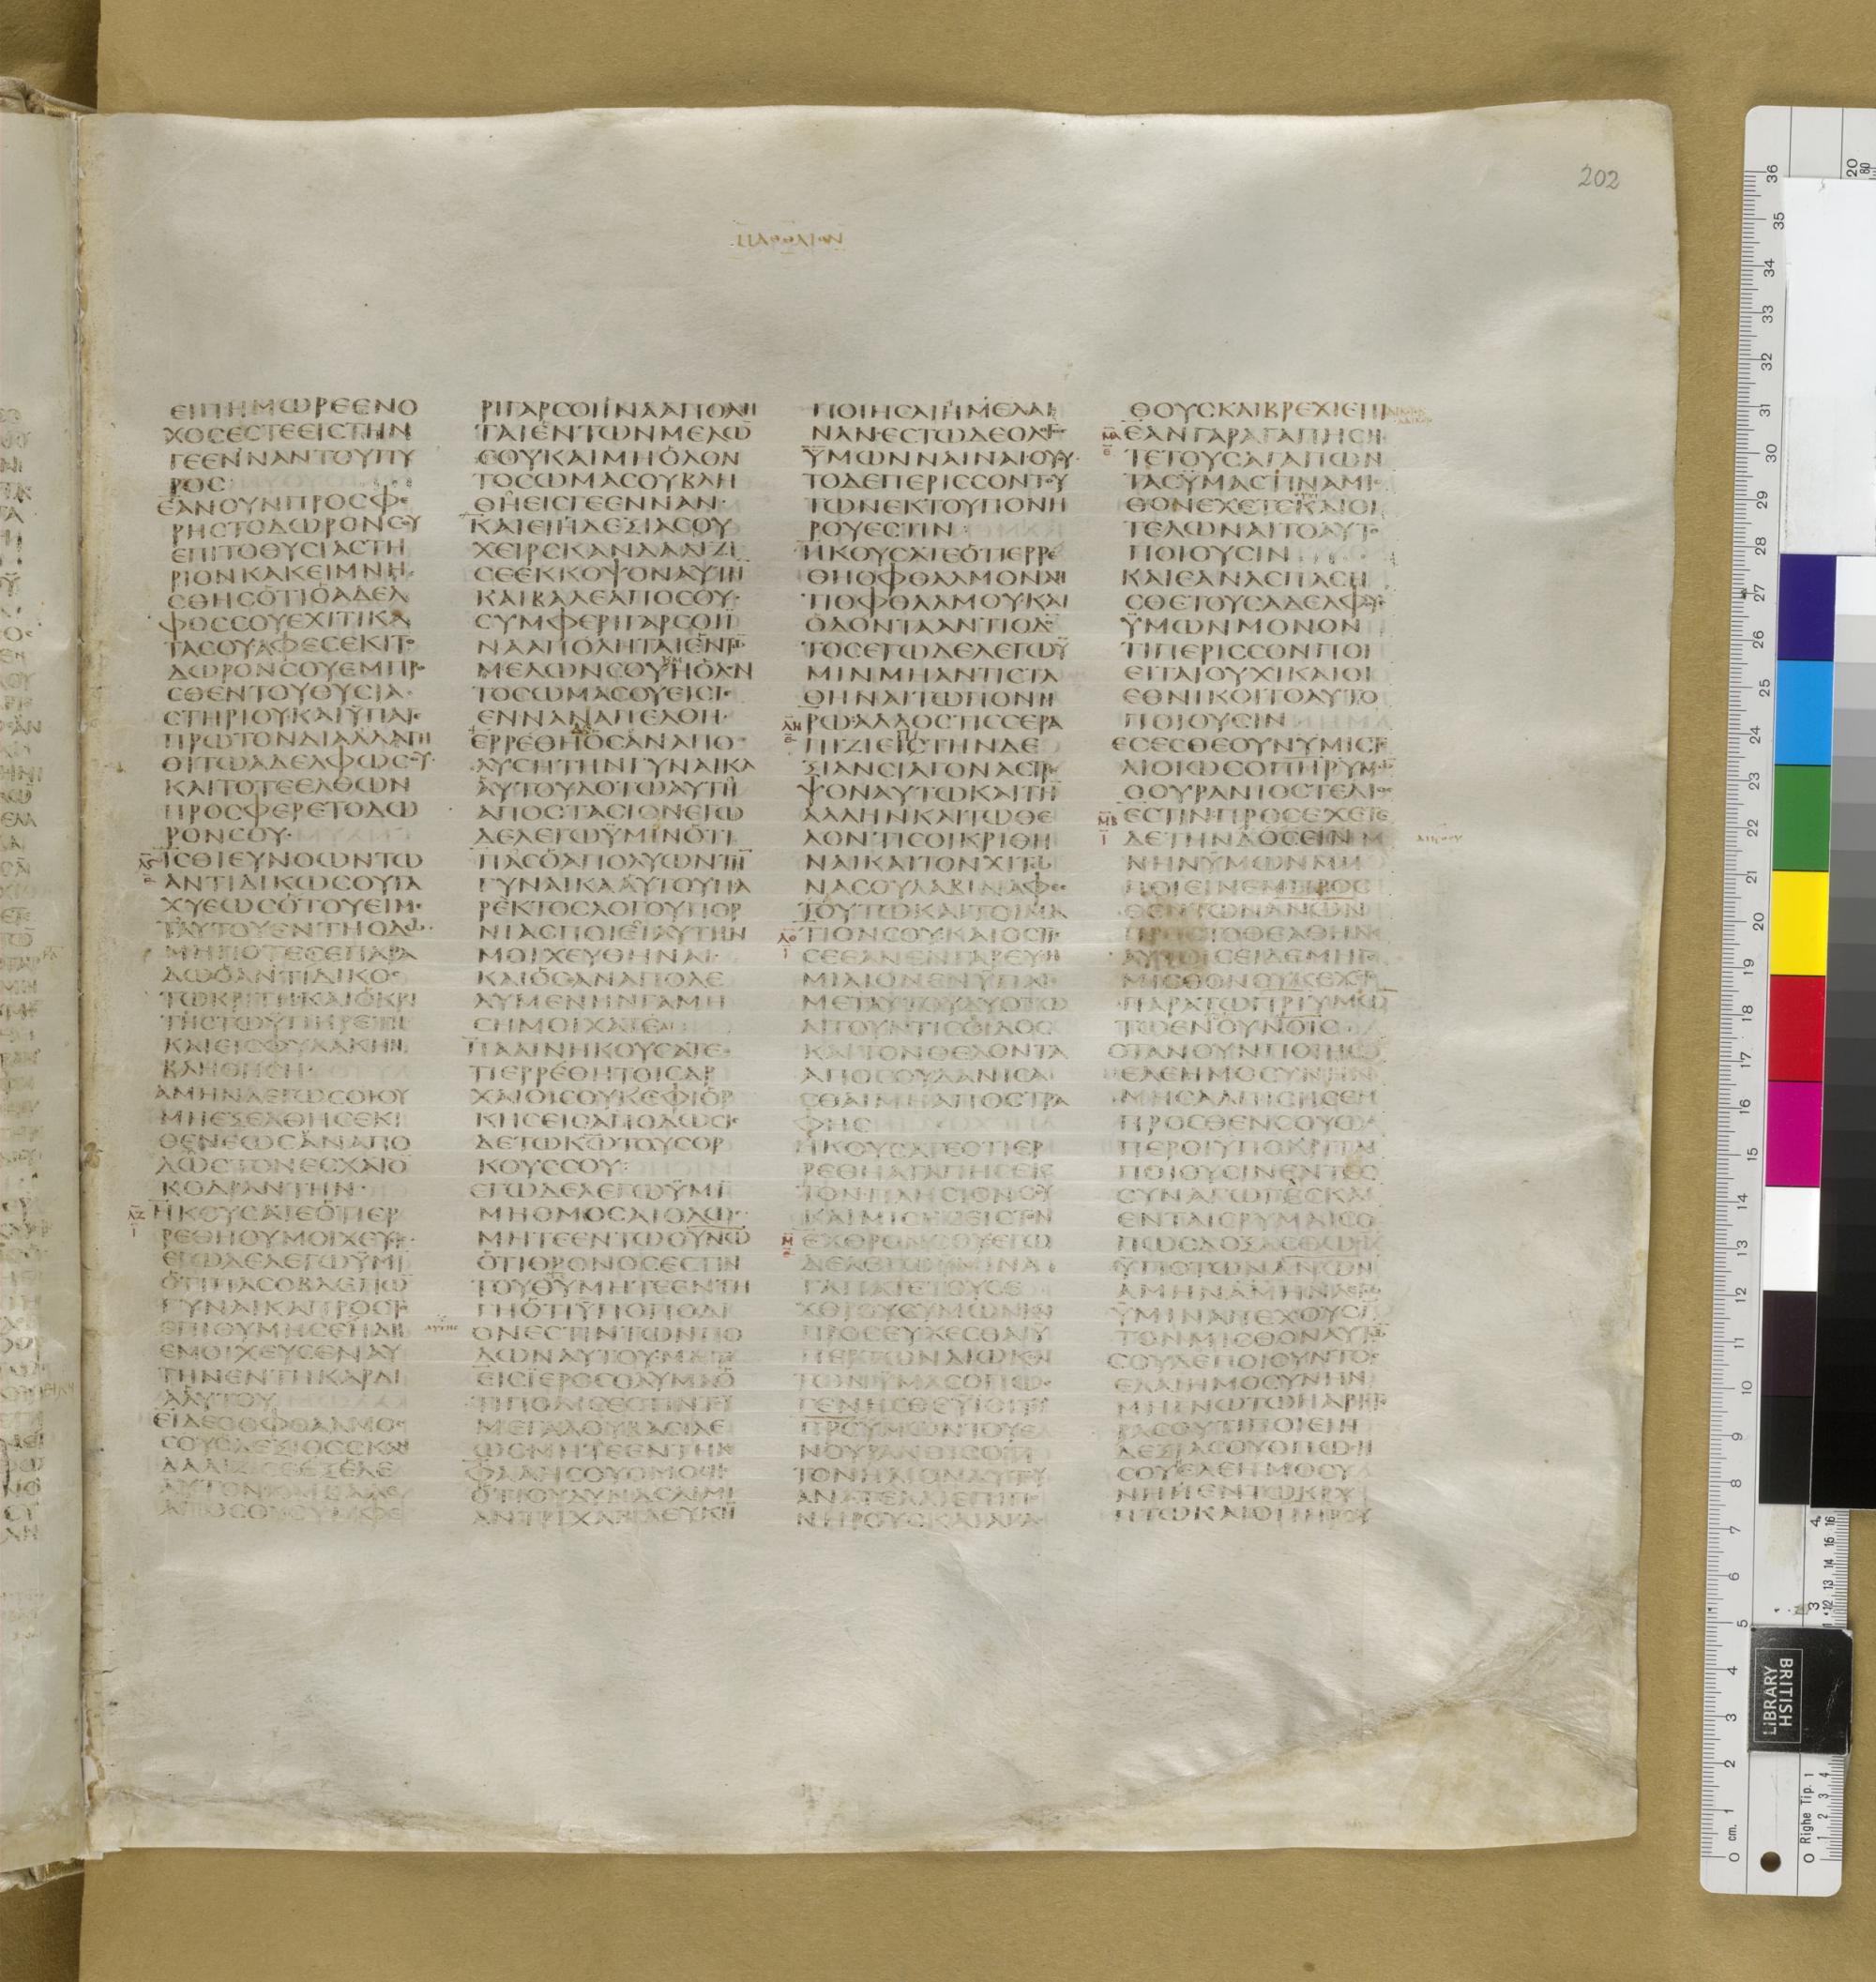 202
ΕΙΠΗΜΩΡΕΕΝΟ
ΧΟΣΕΣΤΕΕΙΣΤΗΝ
ΓΕΕΝΝΑΝΤΟΥΠΥ
ΡΟΣ
ΕΑΝΟΥΝΠΡΟΣΦΕ
ΡΗΣΤΟΔΩΡΟΝΣΟΥ
ΕΠΙΤΟΘΥΣΙΑΣΤΗ
ΡΙΟΝΚΑΚΕΙΜΝΗ
ΣΘΗΣΟΤΙΟΑΔΕΛ
ΦΟΣΣΟΥΕΧΙΤΙΚΑ
ΤΑΣΟΥΑΦΕΣΕΚΙΤΟ
ΔΩΡΟΝΣΟΥΕΜΠΡΟ
ΣΘΕΝΤΟΥΘΥΣΙΑ
ΣΤΗΡΙΟΥΚΑΙΫΠΑΓΕ
ΠΡΩΤΟΝΔΙΑΛΛΑΓΗ
ΘΙΤΩΑΔΕΛΦΩΣΟΥ
ΚΑΙΤΟΤΕΕΛΘΩΝ
ΠΡΟΣΦΕΡΕΤΟΔΩ
ΡΟΝΣΟΥ
ΙΣΘΙΕΥΝΟΩΝΤΩ
ΑΝΤΙΔΙΚΩΣΟΥΤΑ
ΧΥΕΩΣΟΤΟΥΕΙΜΕ
ΤΑΥΤΟΥΕΝΤΗΟΔΩ
ΜΗΠΟΤΕΣΕΠΑΡΑ
ΔΩΟΑΝΤΙΔΙΚΟΣ
ΤΩΚΡΙΤΗΚΑΙΟΚΡΙ
ΤΗΣΤΩΫΠΗΡΕΤΗ
ΚΑΙΕΙΣΦΥΛΑΚΗΝ
ΒΛΗΘΗΣΗ
ΑΜΗΝΛΕΓΩΣΟΙΟΥ
ΜΗΕΞΕΛΘΗΣΕΚΙ
ΘΕΝΕΩΣΑΝΑΠΟ
ΔΩΣΤΟΝΕΣΧΑΤΟ
ΚΟΔΡΑΝΤΗΝ
ΗΚΟΥΣΑΤΕΟΤΙΕΡ
ΡΕΘΗΟΥΜΟΙΧΕΥΣΙΣ
ΕΓΩΔΕΛΕΓΩΫΜΙ
ΟΤΙΠΑΣΟΒΛΕΠΩ
ΓΥΝΑΙΚΑΠΡΟΣΤΟ
ΕΠΙΘΥΜΗΣΕΗΔΗ
ΕΜΟΙΧΕΥΣΕΝΑΥ
ΤΗΝΕΝΤΗΚΑΡΔΙ
ΑΑΥΤΟΥ
ΕΙΔΕΟΟΦΘΑΛΜΟΣ
ΣΟΥΟΔΕΞΙΟΣΣΚΑΝ
ΔΑΛΙΖΙΣΕΕΞΕΛΕ
ΑΥΤΟΝΚΑΙΒΑΛΕ
ΑΠΟΣΟΥΣΥΜΦΕ
ΡΙΓΑΡΣΟΙΪΝΑΑΠΟΛΗ
ΤΑΙΕΝΤΩΝΜΕΛΩ
ΣΟΥΚΑΙΜΗΟΛΟΝ
ΤΟΣΩΜΑΣΟΥΒΛΗ
ΘΗΕΙΣΓΕΕΝΝΑΝ
ΚΑΙΕΙΗΔΕΞΙΑΣΟΥ
ΧΕΙΡΣΚΑΝΔΑΛΙΖΙ
ΣΕΕΚΚΟΨΟΝΑΥΤΗ
ΚΑΙΒΑΛΕΑΠΟΣΟΥ
ΣΥΜΦΕΡΙΓΑΡΣΟΙΪ
ΝΑΑΠΟΛΗΤΑΙΕΝΤΩ
ΜΕΛΩΝΣΟΥΗΟΛΟΝ
ΤΟΣΩΜΑΣΟΥΕΙΣΓΕ
ΕΝΝΑΝΑΠΕΛΘΗ
ΕΡΡΕΘΗΟΣΑΝΑΠΟ
ΛΥΣΗΤΗΝΓΥΝΑΙΚΑ
ΑΥΤΟΥΔΟΤΩΑΥΤΗ
ΑΠΟΣΤΑΣΙΟΝΕΓΩ
ΔΕΛΕΓΩΫΜΙΝΟΤΙ
ΠΑΣΟΑΠΟΛΥΩΝΤΗ
ΓΥΝΑΙΚΑΑΥΤΟΥΠΑ
ΡΕΚΤΟΣΛΟΓΟΥΠΟΡ
ΝΙΑΣΠΟΙΕΙΑΥΤΗΝ
ΜΟΙΧΕΥΘΗΝΑΙ
ΚΑΙΟΣΑΝΑΠΟΛΕ
ΛΥΜΕΝΗΝΓΑΜΗ
ΣΗΜΟΙΧΑΤΕ
ΠΑΛΙΝΗΚΟΥΣΑΤΕΟ
ΤΙΕΡΡΕΘΗΤΟΙΣΑΡ
ΧΑΙΟΙΣΟΥΚΕΦΙΟΡ
ΚΗΣΕΙΣΑΠΟΔΩΣΙΣ
ΔΕΤΩΚΩΤΟΥΣΟΡ
ΚΟΥΣΣΟΥ
ΕΓΩΔΕΛΕΓΩΫΜΙ
ΜΗΟΜΟΣΑΙΟΛΩΣ
ΜΗΤΕΕΝΤΩΟΥΝΩ
ΟΤΙΘΡΟΝΟΣΕΣΤΙΝ
ΤΟΥΘΥΜΗΤΕΕΝΤΗ
ΓΗΟΤΙΫΠΟΠΟΔΙ
ΟΝΕΣΤΙΝΤΩΝΠΟ
ΔΩΝΑΥΤΟΥΜΗΤΕ
ΕΙΣΙΕΡΟΣΟΛΥΜΑΟ
ΤΙΠΟΛΙΣΕΣΤΙΝΤΟΥ
ΜΕΓΑΛΟΥΒΑΣΙΛΕ
ΩΣΜΗΤΕΕΝΤΗΚΕ
ΦΑΛΗΣΟΥΟΜΟΣΗΣ
ΟΤΙΟΥΔΥΝΑΣΑΙΜΙ
ΑΝΤΡΙΧΑΛΕΥΚΗ
ΠΟΙΗΣΑΙΗΜΕΛΑΙ
ΝΑΝΕΣΤΩΔΕΟΛΟΓΟΣ
ΫΜΩΝΝΑΙΝΑΙΟΥΟΥ
ΤΟΔΕΠΕΡΙΣΣΟΝΤΟΥ
ΤΩΝΕΚΤΟΥΠΟΝΗ
ΡΟΥΕΣΤΙΝ
ΗΚΟΥΣΑΤΕΟΤΙΕΡΡΕ
ΘΗΟΦΘΑΛΜΟΝΑΝ
ΤΙΟΦΘΑΛΜΟΥΚΑΙ
ΟΔΟΝΤΑΑΝΤΙΟΔΟ
ΤΟΣΕΓΩΔΕΛΕΓΩΫ
ΜΙΝΜΗΑΝΤΙΣΤΑ
ΘΗΝΑΙΤΩΠΟΝΗ
ΡΩΑΛΛΟΣΤΙΣΣΕΡΑ
ΠΙΖΙΕΙΣΤΗΝΔΕ
ΞΙΑΝΣΙΑΓΟΝΑΣΤΡΕ
ΨΟΝΑΥΤΩΚΑΙΤΗ
ΑΛΛΗΝΚΑΙΤΩΘΕ
ΛΟΝΤΙΣΟΙΚΡΙΘΗ
ΝΑΙΚΑΙΤΟΝΧΙΤΩ
ΝΑΣΟΥΛΑΒΙΝΑΦΕΣ
ΤΟΥΤΩΚΑΙΤΟΙΜΑ
ΤΙΟΝΣΟΥΚΑΙΟΣΤΙΣ
ΣΕΕΑΝΕΝΓΑΡΕΥΣΗ
ΜΙΛΙΟΝΕΝΫΠΑΓΕ
ΜΕΤΑΥΤΟΥΔΥΟΤΩ
ΑΙΤΟΥΝΤΙΣΕΔΟΣ
ΚΑΙΤΟΝΘΕΛΟΝΤΑ
ΑΠΟΣΟΥΔΑΝΙΣΑ
ΣΘΑΙΜΗΑΠΟΣΤΡΑ
ΦΗΣ
ΗΚΟΥΣΑΤΕΟΤΙΕΡ
ΡΕΘΗΑΓΑΠΗΣΕΙΣ
ΤΟΝΠΛΗΣΙΟΝΣΟΥ
ΚΑΙΜΙΣΗΣΕΙΣΤΟΝ
ΕΧΘΡΟΝΣΟΥΕΓΩ
ΔΕΛΕΓΩΫΜΙΝΑ
ΓΑΠΑΤΕΤΟΥΣΕ
ΧΘΡΟΥΣΫΜΩΝΚΑΙ
ΠΡΟΣΕΥΧΕΣΘΑΙΫ
ΠΕΡΤΩΝΔΙΩΚΟΝ
ΤΩΝΫΜΑΣΟΠΩΣ
ΓΕΝΗΣΘΕΫΙΟΙΤΟΥ
ΠΡΣΫΜΩΝΤΟΥΕ
ΝΟΥΡΑΝΟΙΣΟΤΙ
ΤΟΝΗΛΙΟΝΑΥΤΟΥ
ΑΝΑΤΕΛΛΙΕΠΙΠΟ
ΝΗΡΟΥΣΚΑΙΑΓΑ
ΘΟΥΣΚΑΙΒΡΕΧΙΕΠΙ
ΕΑΝΓΑΡΑΓΑΠΗΣΗ
ΤΕΤΟΥΣΑΓΑΠΩΝ
ΤΑΣΫΜΑΣΤΙΝΑΜΙ
ΣΘΟΝΕΧΕΤΕΚΑΙΟΙ
ΤΕΛΩΝΑΙΤΟΑΥΤΟ
ΠΟΙΟΥΣΙΝ
ΚΑΙΕΑΝΑΣΠΑΣΗ
ΣΘΕΤΟΥΣΑΔΕΛΦΟΥΣ
ΫΜΩΝΜΟΝΟΝ
ΤΙΠΕΡΙΣΣΟΝΠΟΙ
ΕΙΤΑΙΟΥΧΙΚΑΙΟΙ
ΕΘΝΙΚΟΙΤΟΑΥΤΟ
ΠΟΙΟΥΣΙΝ
ΕΣΕΣΘΕΟΥΝΫΜΙΣΤΕ
ΛΙΟΙΩΣΟΠΗΡΫΜΩ
ΟΟΥΡΑΝΙΟΣΤΕΛΙΟΣ
ΕΣΤΙΝΠΡΟΣΕΧΕΤΕ
ΔΕΤΗΝΔΟΣΕΙΝΜ
ΝΗΝΫΜΩΝΜΗ
ΠΟΙΕΙΝΕΜΠΡΟΣ
ΘΕΝΤΩΝΑΝΩΝ
ΠΡΟΣΤΟΘΕΑΘΗΝΑΙ
ΑΥΤΟΙΣΕΙΔΕΜΗΓΕ
ΜΙΣΘΟΝΟΥΚΕΧΕΤΕ
ΠΑΡΑΤΩΠΡΙΫΜΩ
ΤΩΕΝΟΥΝΟΙΣ
ΟΤΑΝΟΥΝΠΟΙΗΣ
ΕΛΕΗΜΟΣΥΝΗΝ
ΜΗΣΑΛΠΙΣΗΣΕΜ
ΠΡΟΣΘΕΝΣΟΥΩ
ΠΕΡΟΙΫΠΟΚΡΙΤΑΙ
ΠΟΙΟΥΣΙΝΕΝΤΕΣ
ΣΥΝΑΓΩΓΕΣΚΑΙ
ΕΝΤΑΙΣΡΥΜΑΙΣΟ
ΠΩΣΔΟΞΑΣΘΩΣΙ
ΫΠΟΤΩΝΑΝΩΝ
ΑΜΗΝΑΜΗΝΛΕΓΩ
ΫΜΙΝΑΠΕΧΟΥΣΙ
ΤΟΝΜΙΣΘΟΝΑΥΤΩ
ΣΟΥΔΕΠΟΙΟΥΝΤΟΣ
ΕΛΑΙΗΜΟΣΥΝΗΝ
ΜΗΓΝΩΤΩΗΑΡΙΣΤΕ
ΡΑΣΟΥΤΙΠΟΙΕΙΗ
ΔΕΞΙΑΣΟΥΟΠΩΣΗ
ΣΟΥΕΛΕΗΜΟΣΥ
ΝΗΗΕΝΤΩΚΡΥ
ΠΤΩΚΑΙΟΠΗΡΣΟΥ
BRITISH
LIBRARY